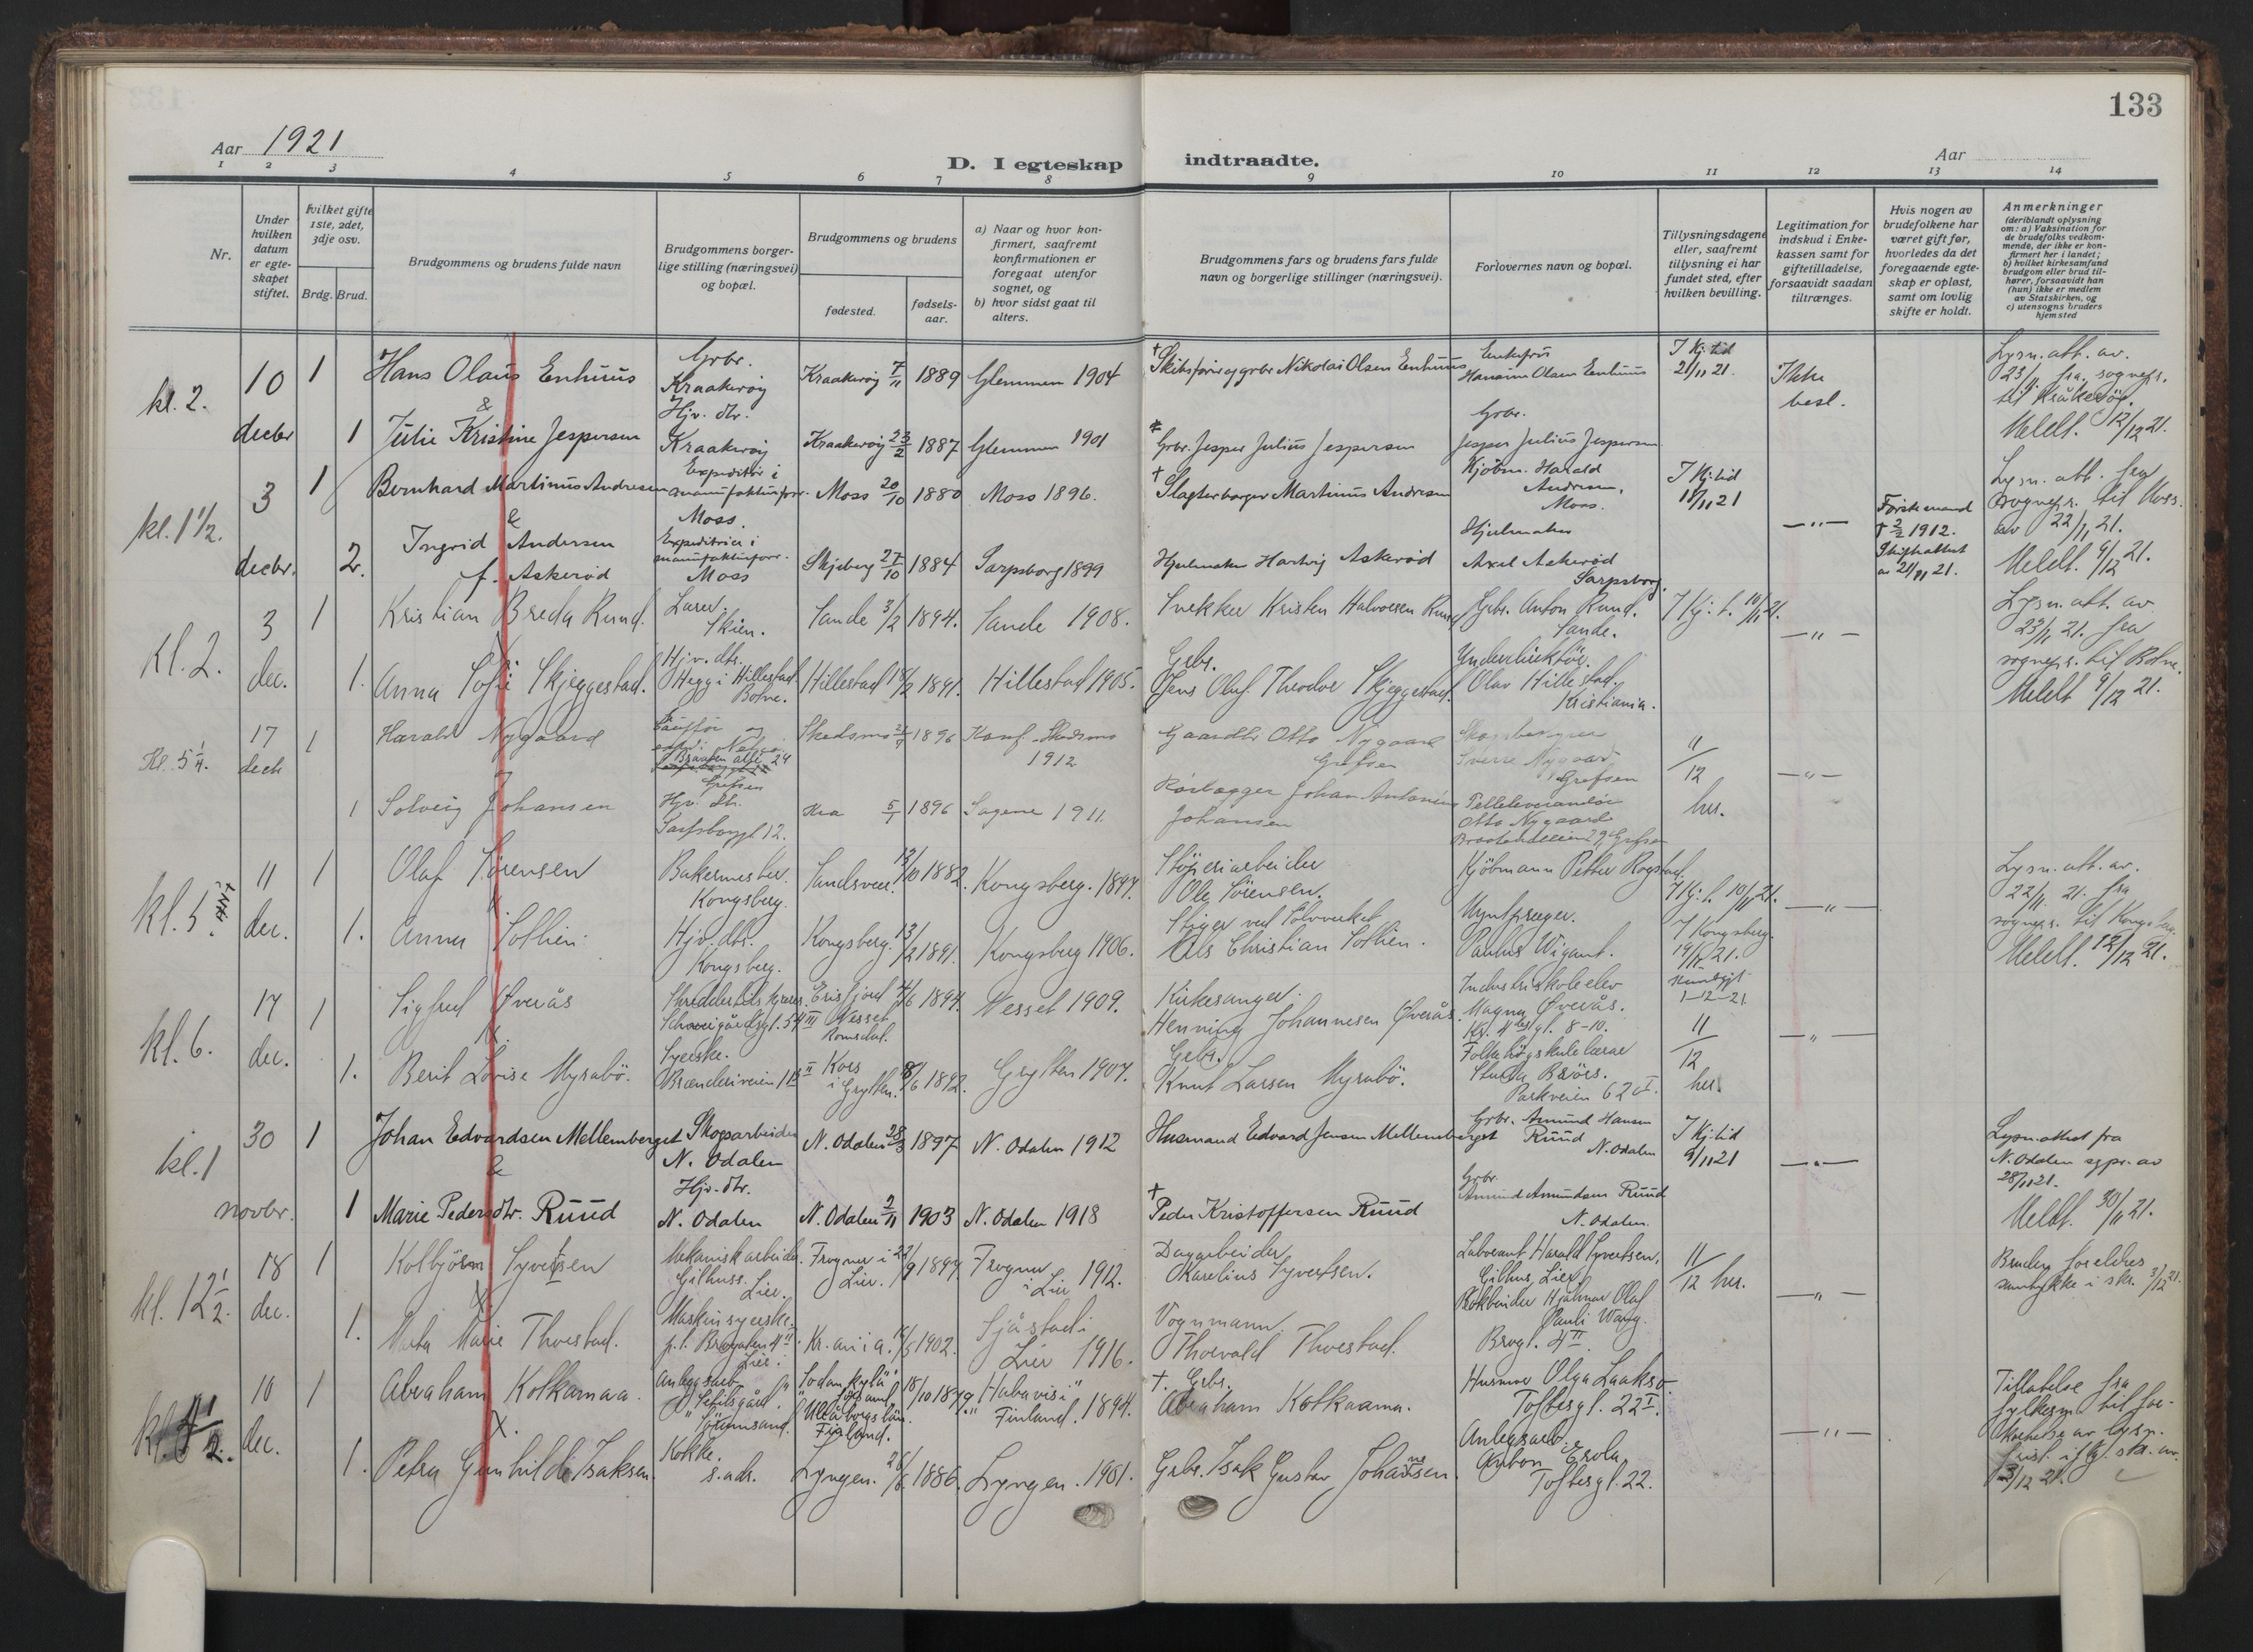 133
Aar 1921
D. I egteskap indtraadte.
Aar
1 2 3 4 5 6 7 8 9 10 11 12 13 14
Nr.
Under hvilken datum er egteskapet stiftet.
hvilket gifte 1ste, 2det, 3dje osv.
Brdg. Brud.
Brudgommens og brudens fulde navn
Brudgommens borgerlige stilling (næringsvei) og bopæl.
Brudgommens og brudens
fødested.
fødselsaar.
a) Naar og hvor konfirmert, saafremt konfirmationen er foregaat utenfor sognet, og
b) hvor sidst gaat til alters.
Brudgommens fars og brudens fars fulde navn og borgerlige stillinger (næringsvei).
Forlovernes navn og bopæl.
Tillysningsdagene eller, saafremt tillysning ei har fundet sted, efter hvilken bevilling.
Legitimation for indskud i Enkekassen samt for giftetilladelse, forsaavidt saadan tiltrænges.
Hvis nogen av brudefolkene har været gift før, hvorledes da det foregaaende egteskap er opløst, samt om lovlig skifte er holdt.
Anmerkninger
(deriblandt oplysning om: a) Vaksination for de brudefolks vedkommende, der ikke er konfirmert her i landet;
b) hvilket kirkesamfund brudgom eller brud tilhører, forsaavidt han (hun) ikke er medlem av Statskirken, og
c) utensogns bruders hjemsted
kl. 2. 10 decbr 1 Hans Olaus Enhuus Grbr. Kraakerøy Kraakerøy 7/11 1889 Glemmen 1904 † Skibsfører og grbr Nikolai Olsen Enhuus Enkefru Hanna Olsen Enhuus I Kj. tid 21/11 21. Ikke besl. Lysn. att. av. 23/11 fra sognepr. til Kråkerøy. Meldt. 12/12 21.
&
1 Julie Kristine Jespersen Hjv. dtr. Kraakerøy Kraakerøy 23/2 1887 Glemmen 1901 Grbr. Jesper Julius Jespersen Grbr. Jesper Julius Jespersen
kl. 1 1/2. 3 decbr. 1 Bernhard Martinus Andresen Expeditør i manufakturforr. Moss. Moss 20/10 1880 Moss 1896. † Slagterborger Martinus Andresen Kjøbm. Harald Andresen, Moss. I Kj. tid 18/11 21 —"— Første mand † 2/2 1912. Skifteattest av 21/11 21. Lysn. att. fra sognepr. til Moss. av 22/11 21. Meldt. 9/12 21.
&
2. Ingrid Andersen f. Askerød Expeditrice i manufakturforr. Moss Skjeberg 27/10 1884 Sarpsborg 1899 Hjulmaker Hartvig Askerød Hjulmaker Axel Askerød Sarpsborg.
Kl. 2. 3 dec. 1 Kristian Breda Rund. Lærer. Skien. Sande 3/2 1894. Sande 1908. Snekker Kristen Halvorsen Rund Grbr. Anton Rund. Sande. I Kj. t. 10/11 21. —"— Lysn. att. av 23/11 21. fra sognepr. til Botne. Meldt 9/12 21.
1. Anna Sofie Skjeggestad. Hjv. dtr. Hegg i Hillestad. Botne. Hillestad 18/2 1891. Hillestad 1905. Grbr. Jens Olaf Theodor Skjeggestad. Underdirektør. Olav Hillestad. Kristiania.
Kl. 5 1/4. 17 decb 1 Harald Nygaard Braaten alle 24 Grefsen Skedsmo 1896 Konf. Skedsmo 1912 Gaardbr Otto Nygaard Grefsen Sverre Nygaard Grefsen 11/12 her. —"—
1 Solveig Johansen Hjv. dtr. Sarpsborggt 12. Kra 5/1 1896 Sagene 1911. Rørlægger Johan Antonius Johansen Otto Nygaard Grefsen
kl. 5. 11 dec. 1 Olaf Sørensen Bakermester. Kongsberg. Sandsvær. 13/10 1882. Kongsberg. 1897. Støperiarbeider Ole Sørensen. Kjöbmann Petter Rogstad. I Kj. t. 10/11 21. I Kongsberg. 19/11 21. —"— Lysn. att. av. 22/11 21. fra sognepr. til Kongsberg. Meldt. 12/12 21.
1. Anna Sollien. Hjv. dtr. Kongsberg. Kongsberg. 13/2 1891. Kongsberg 1906. Stiger ved Sölvverket Nils Christian Sollien. Myntpræger. Paulus Wigant.
kl. 6. 17 dec. 1 Sigfred Øverås Schweigårdsgt. 54 III Erisfjord Nesset Romsdal. 4/6 1894. Nesset 1909. Kirkesanger. Henning Johannesen Øverås Industriskoleelev Magna Øverås. kunngjt 1-12-21 11/12 her. —"—
1. Berit Lovise Myrabö. Syerske. Brænderiveien Kors i Grytten. 8/6 1892. Grytten 1907. Grbr. Knut Larsen Myrabö. Folkehögskulelærar Sturla Brörs. Parkveien 62 I.
kl. 1 30 novbr. 1 Johan Edvardsen Mellemberget Skogsarbeider N. Odalen N. Odalen 28/3 1897 N. Odalen 1912 Husmand Edvard Jensen Mellemberget Grbr. Amund Hansen Ruud N. Odalen I Kj. tid 9/11 21 —"— Lysn. attest fra N. Odalen sgpr. av 28/11 21. Meldt. 30/11 21.
&
1 Marie Pedersdtr. Ruud Hjv. dtr. N. Odalen N. Odalen 2/11 1903 N. Odalen 1918 † Peder Kristoffersen Ruud Grbr. Amund Amundsen Ruud N. Odalen.
kl. 12 1/2. 18 dec. 1 Kolbjörn Syvertsen Mekanisk arbeider. Gilhuss. Lier. Frogner i Lier. 22/9 1897 Frogner i Lier 1912. Dagarbeider Karelius Syvertsen. Laborant Harald Syvertsen, Gilhus, Lier. 11/12 her. —"— Brudens foreldres samtykke i skr. 3/12 21.
1. Marta Marie Thorstad. Maskinsyerske. p.t. Brogaten 4 II Lier Kr.ania. 1902. Sjåstad i Lier 1916. Vognmann. Thorvald Thorstad. Bokbinder Hjalmar Olaf Pauli Wang. Brogt. 4 II.
kl. 4 1/2. 10 dec. 1 Abraham Kolkamaa. Anleggsarb. Sörumsand. "Sodankylä" Uleåborgs län. Finland. 18/10 1879. Finland. 1894. †. Grbr. Abraham Kolkaama. Husmor Olga Laakso. Toftesgt. 22 I. —"— Tillatelse fra fylkesm. til for- av lysn. frist ifg. skr. av 3/12 21.
1. Petra Gunhilde Isaksen. Kokke. s. adr. Lyngen. 26/6 1886. Lyngen. 1901. Grbr. Isak Gustav Johannesen. Anleggsarb. Anton Erola Toftesgt. 22.